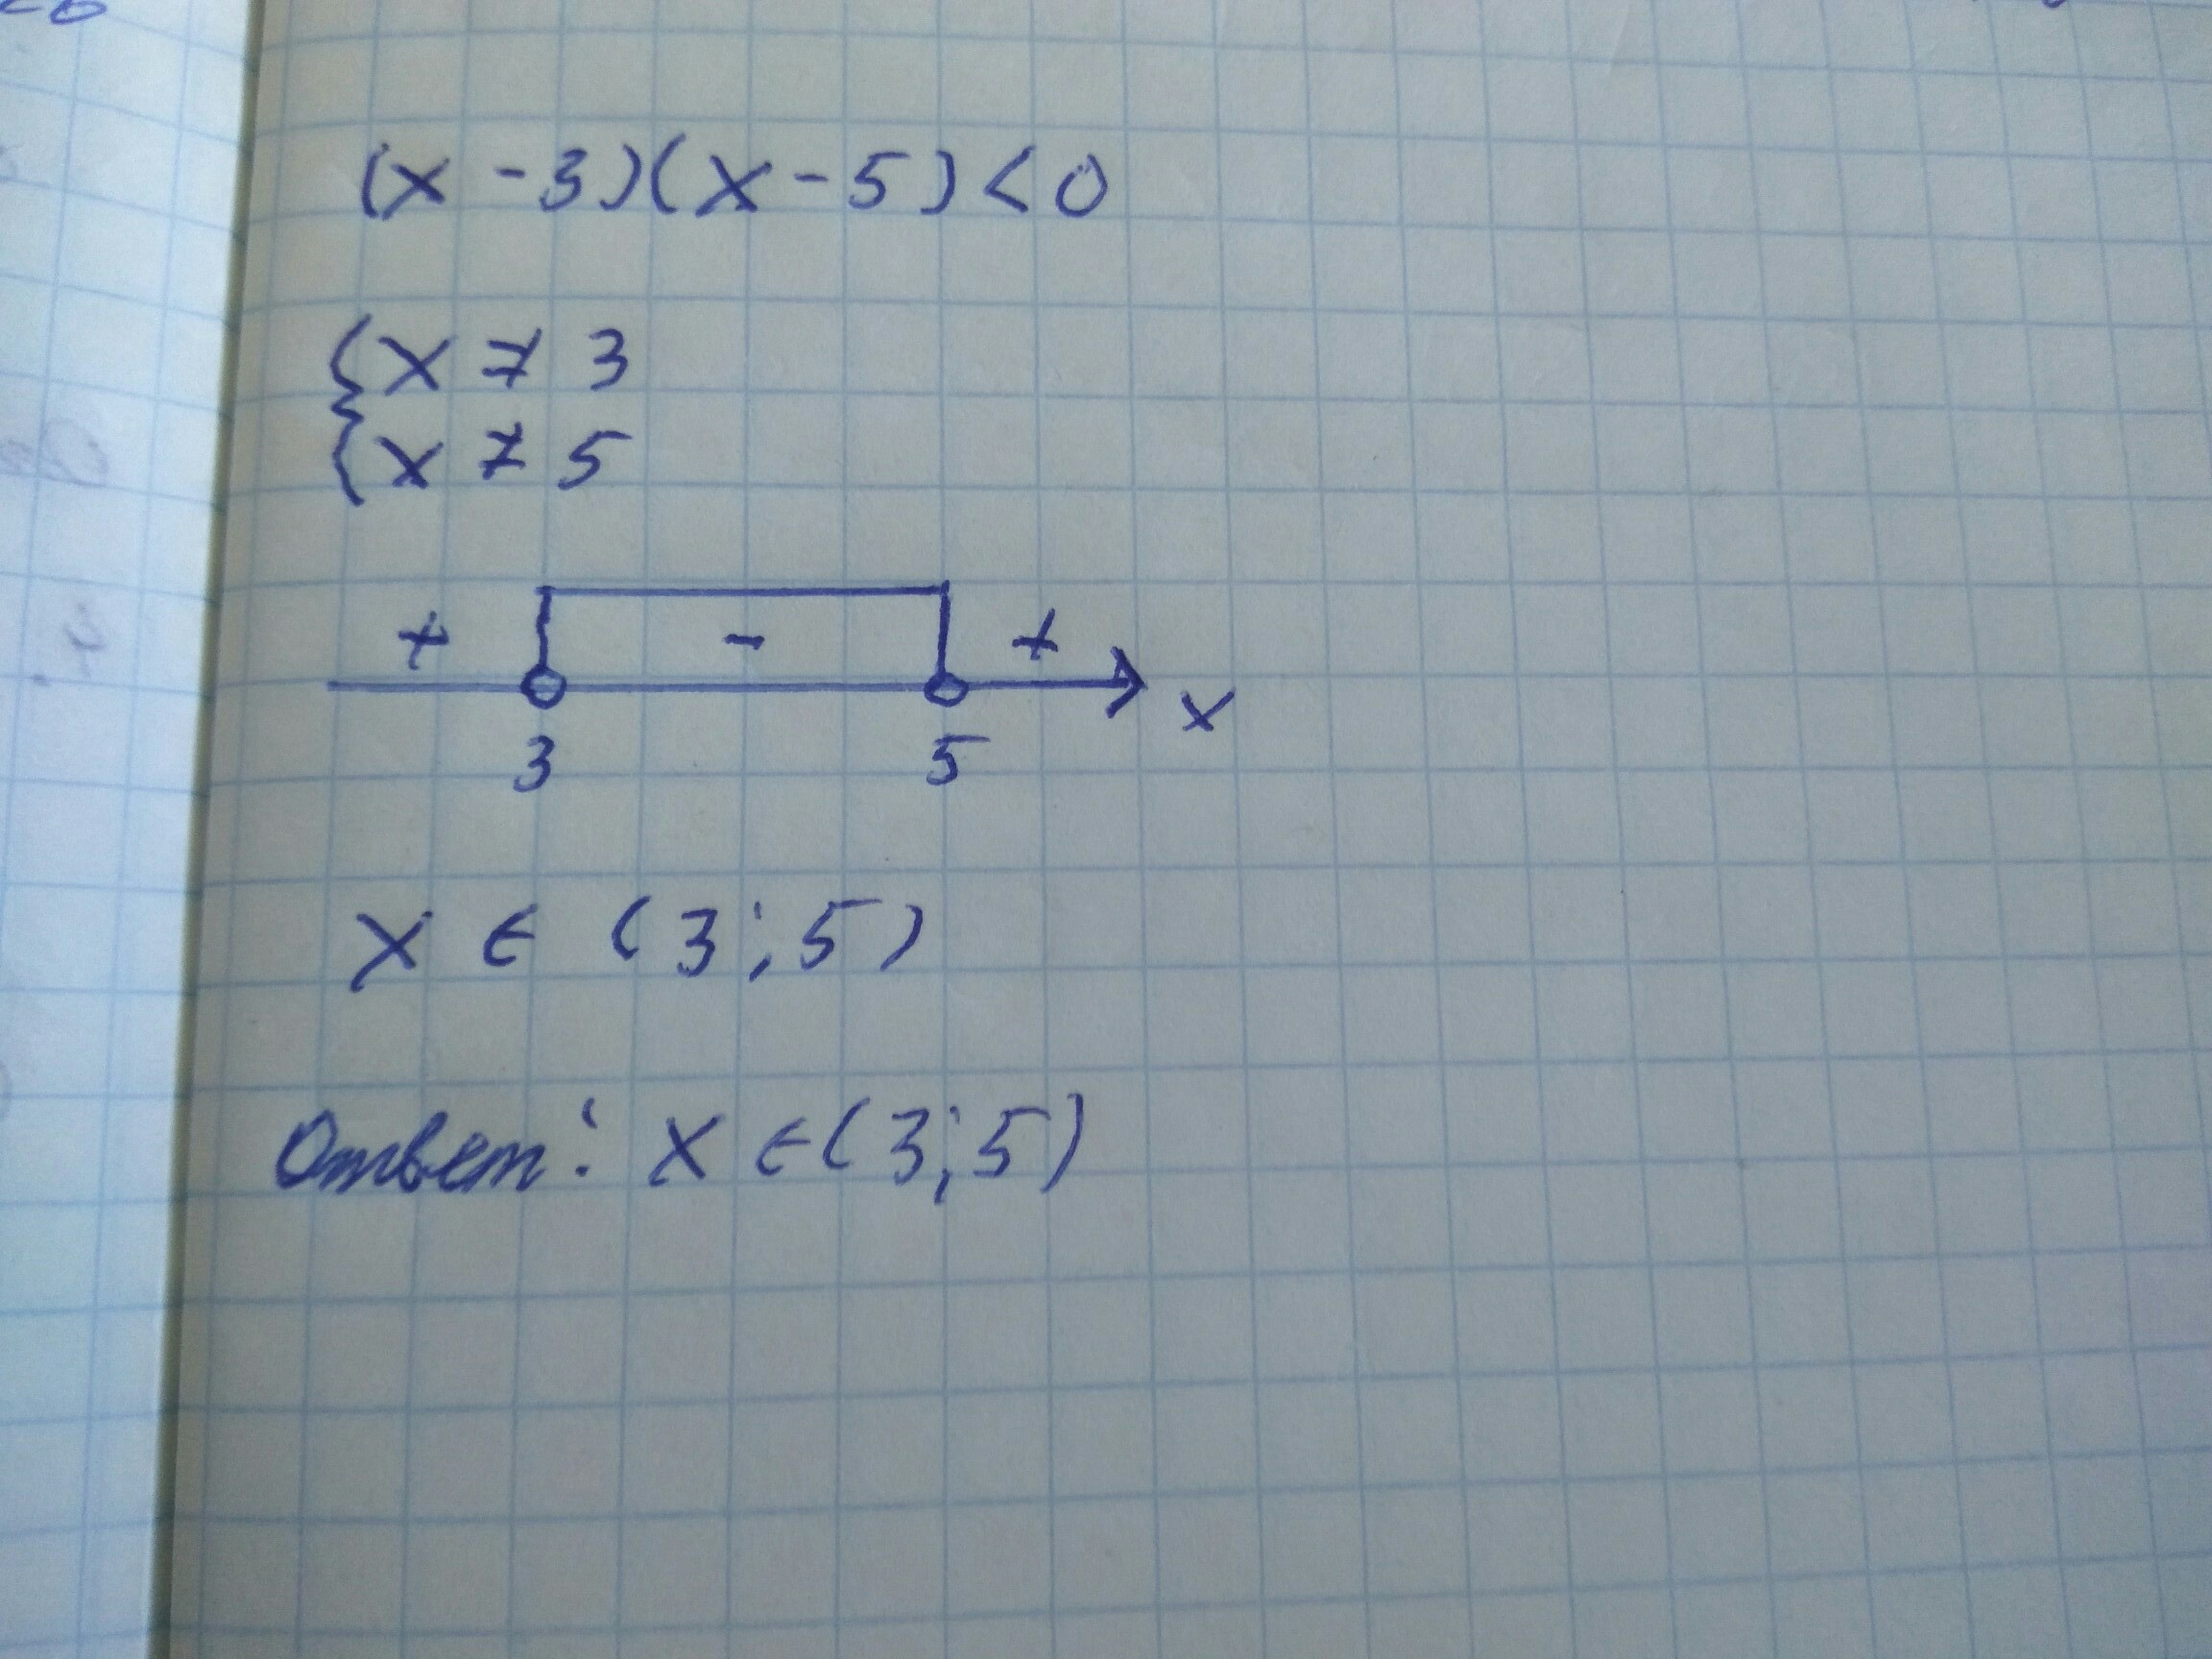 (x - 3)(x - 5) < 0
{ x ≠ 3
{ x ≠ 5
+ - +
3 5 x
x ∈ (3; 5)
Ответ: x ∈ (3; 5)